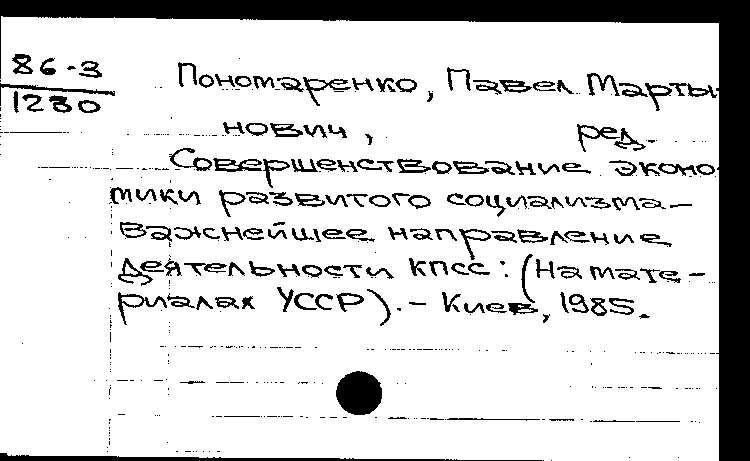 86-3
1230
Пономаренко, Павел Марты-
нович, ред.
Совершенствование эконо
мики развитого социализма –
важнейшее направление
деятельности КПСС: (На мате-
риалах УССР). – Киев, 1985.